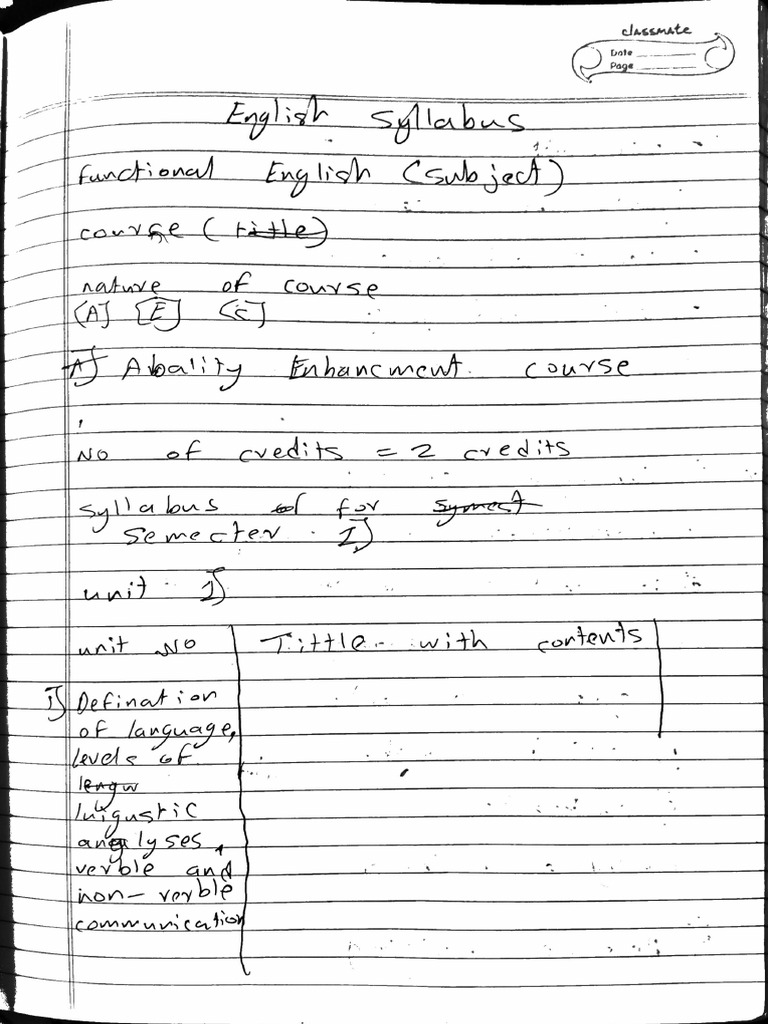 classmate
Date
Page
English Syllabus
functional English (subject)
course (title)
nature of course
[A] [E] [C]
A] Abality Enhancment course
No of credits = 2 credits
syllabus of for symest
Semecter I]
unit 1]
unit No Tittle with contents
I] Defination
of language,
levels of
lengw
luigustic
analyses,
verble and
non-verble
communication